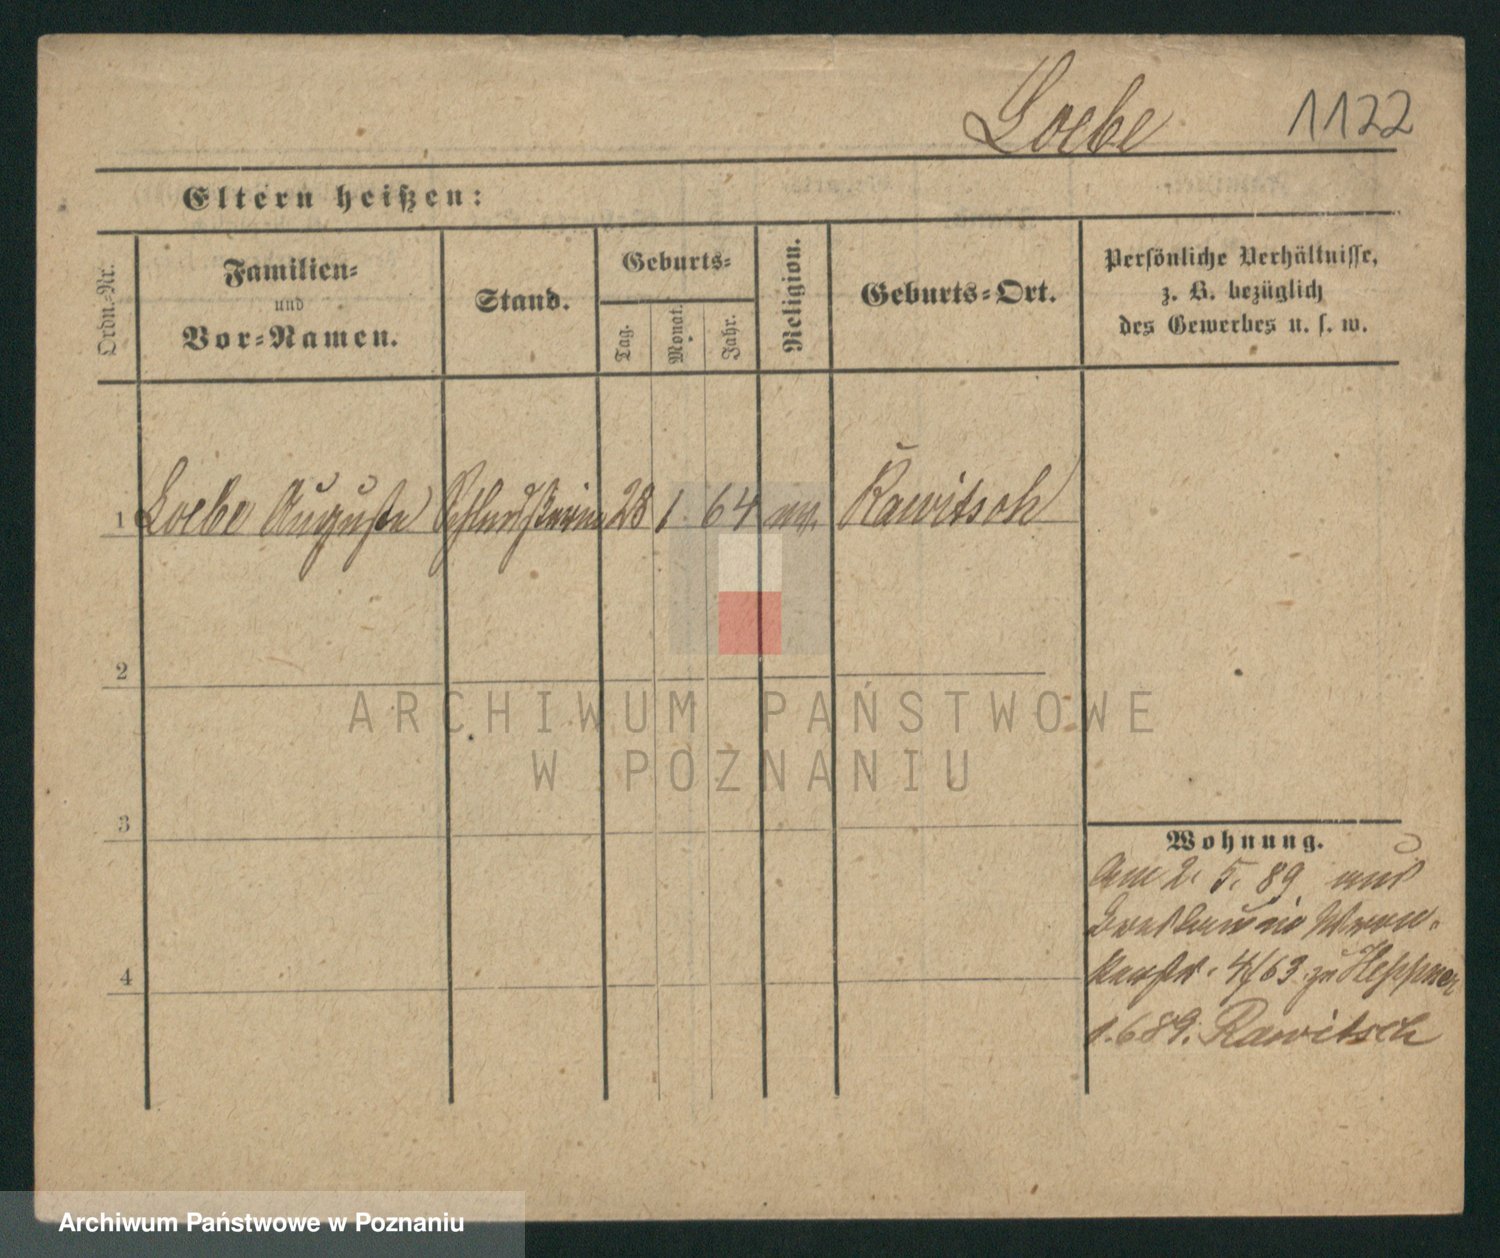 Loebe 1122
Eltern heißen:
Ordn.-Nr.
Familien-
und
Vor-Namen.
Stand.
Geburts-
Tag.
Monat.
Jahr.
Religion.
Geburts-Ort.
Persönliche Verhältnisse,
z. B. bezüglich
des Gewerbes u. s. w.
1 Loebe Auguste 28 1. 64 Rawitsch
2
3
4
Wohnung.
Am 2. 5. 89 aus
Wron-
kerstr. 4/63 zu Heppner
1.6 89. Rawitsch
ARCHIWUM PAŃSTWOWE
W POZNANIU
Archiwum Państwowe w Poznaniu